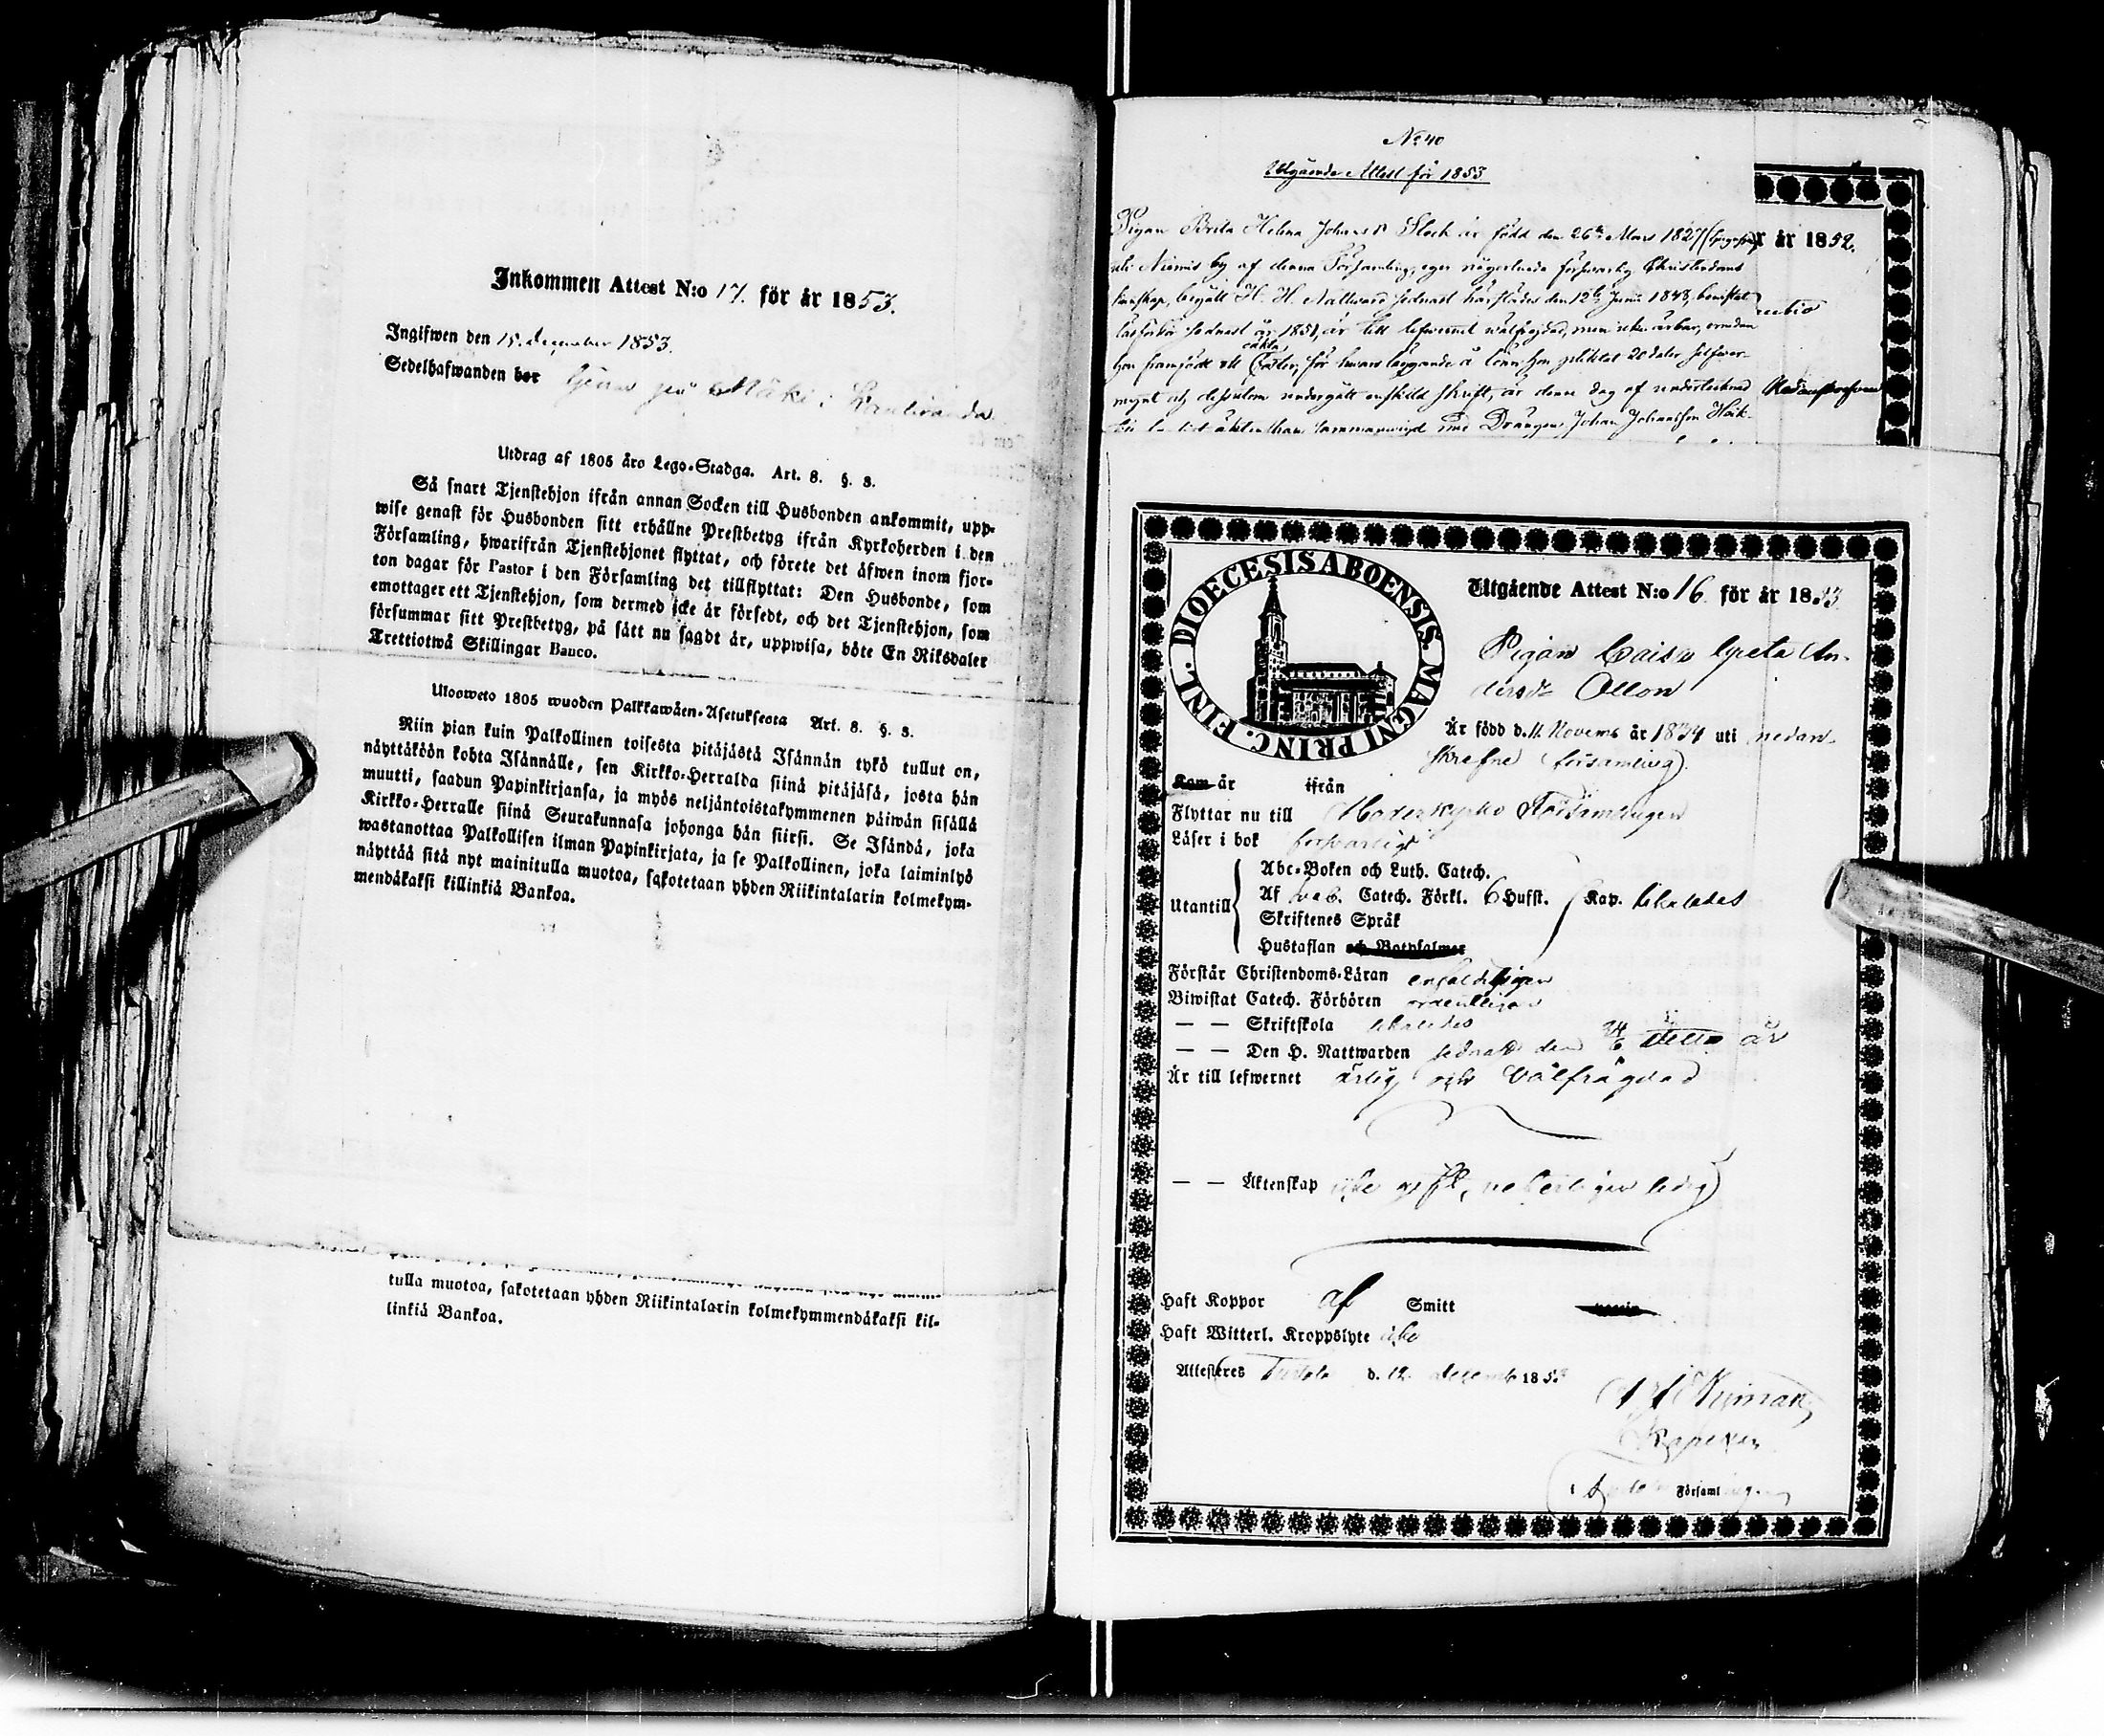 Inkommen Attest N:o 17. för år 1853.
Ingifwen den 15. december 1853.
Sedelhafwanden bor
Utdrag af 1805 års Lego-Stadga. Art. 8. §. 3.
Så snart Tjenstehjon ifrån annan Socken till Husbonden ankommit, upp-
wise genast för Husbonden sitt erhållne Prestbetyg ifrån Kyrkoherden i den
Församling, hwarifrån Tjenstehjonet flyttat, och förete det äfwen inom fjor-
ton dagar för Pastor i den Församling det tillflyttat: Den Husbonde, som
emottager ett Tjenstehjon, som dermed icke är försedt, och det Tjenstehjon, som
försummar sitt Prestbetyg, på sätt nu sagdt är, uppwisa, böte En Riksdaler
Trettiotwå Skillingar Banco.
Ulosweto 1805 wuoden Palkkawäen-Asetuksesta Art. 8. §. 3.
Niin pian kuin Palkollinen toisesta pitäjästä Isännän tykö tullut on,
näyttäköön kohta Isännälle, sen Kirkko-Herralda siinä pitäjäsä, josta hän
muutti, saadun Papinkirjansa, ja myös neljäntoistakymmenen päiwän sisällä
Kirkko-Herralle siinä Seurakunnasa johonga hän siirsi. Se Isändä, joka
wastanottaa Palkollisen ilman Papinkirjata, ja se Palkollinen, joka laiminlyö
näyttää sitä nyt mainitulla muotoa, sakotetaan yhden Riikintalarin kolmekym-
mendäkaksi killinkiä Bankoa.
tulla muotoa, sakotetaan yhden Riikintalarin kolmekymmendäkaksi kil-
linkiä Bankoa.
No 40
Utgående Attest för 1853.
Pigan Brita Helena Johansdr är född den 26te Mars 1827
uti Niemis by af denna Församling, eger någorlunda försvarlig Christendoms
kunskap, begått H. H. Nattward sednast härstädes den 12te Junii 1848, bewistat
sednast år 1851, är till lefwernet wälfrejdad, men icke ärbar, emedan
hon framfödt ett oäkta, för hwars läggande å lönn hon pliktat 20 daler silfwer-
mynt och dessutom undergått enskildt skrift, är denne dag af undertecknad
sammanwigd med Drängen Johan Johansson
r år 1852.
Utgående Attest N:o 16. för år 1853.
DIOECESIS ABOENSIS. MAGNI PRINC. FINL.
Pigan Caisa Greta An-
dersdr Ollon
Är född d. 11 Novemb år 1834 uti nedan-
skrefne församling.
Kom år ifrån
Flyttar nu till Moderkyrko Församlingen
Läser i bok forsvarligt
Utantill
Abc-Boken och Luth. Catech.
Af Catech. Förkl. 6 Hufst. Kap. likaledes
Skriftenes Språk
Hustaflan och Botpsalmer
Förstår Christendoms-Läran enfaldeligen
Biwistat Catech. Förhören ordentligen
— — Skriftskola likaledes
— — Den H. Nattwarden sednast den 24/6 detta år
Är till lefwernet ärlig och Välfrägdad
— — Äktenskap icke gift, ledig
Haft Koppor af Smitt
Haft Witterl. Kroppslyte icke
Attesteres d. 12 decemb 1853
Församlingen